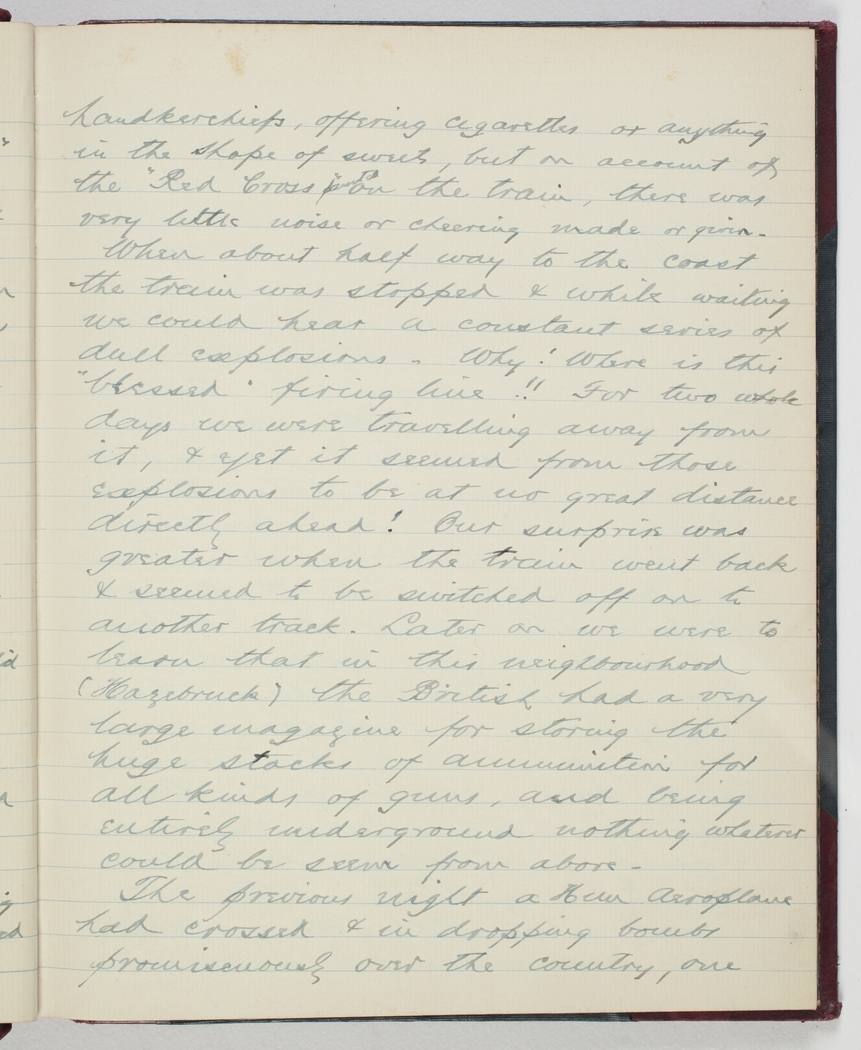 handkerchiefs, offering cigarettes or anything
in the shape of sweets, but on account of
the "Red Cross" on the train, there was
very little noise or cheering made or given.
When about half way to the coast
the train was stopped & while waiting
we could hear a constant series of
dull explosions - Why! Where is this
"blessed" firing line!! For two whole
days we were travelling away from
it, & yet it seemed from those
explosions to be at no great distance
directly ahead! Our surprise was
greater when the train went back
& seemed to be switched off on to
another track. Later on we were to
learn that in this neighbourhood
(Hazebruck) the British had a very
large magazine for storing the
huge stacks of ammunition for
all kinds of guns, and being
entirely underground nothing whatever
could be seen from above -
The previous night a Hun Aeroplane
had crossed & in dropping bombs
promiscuously over the country, one